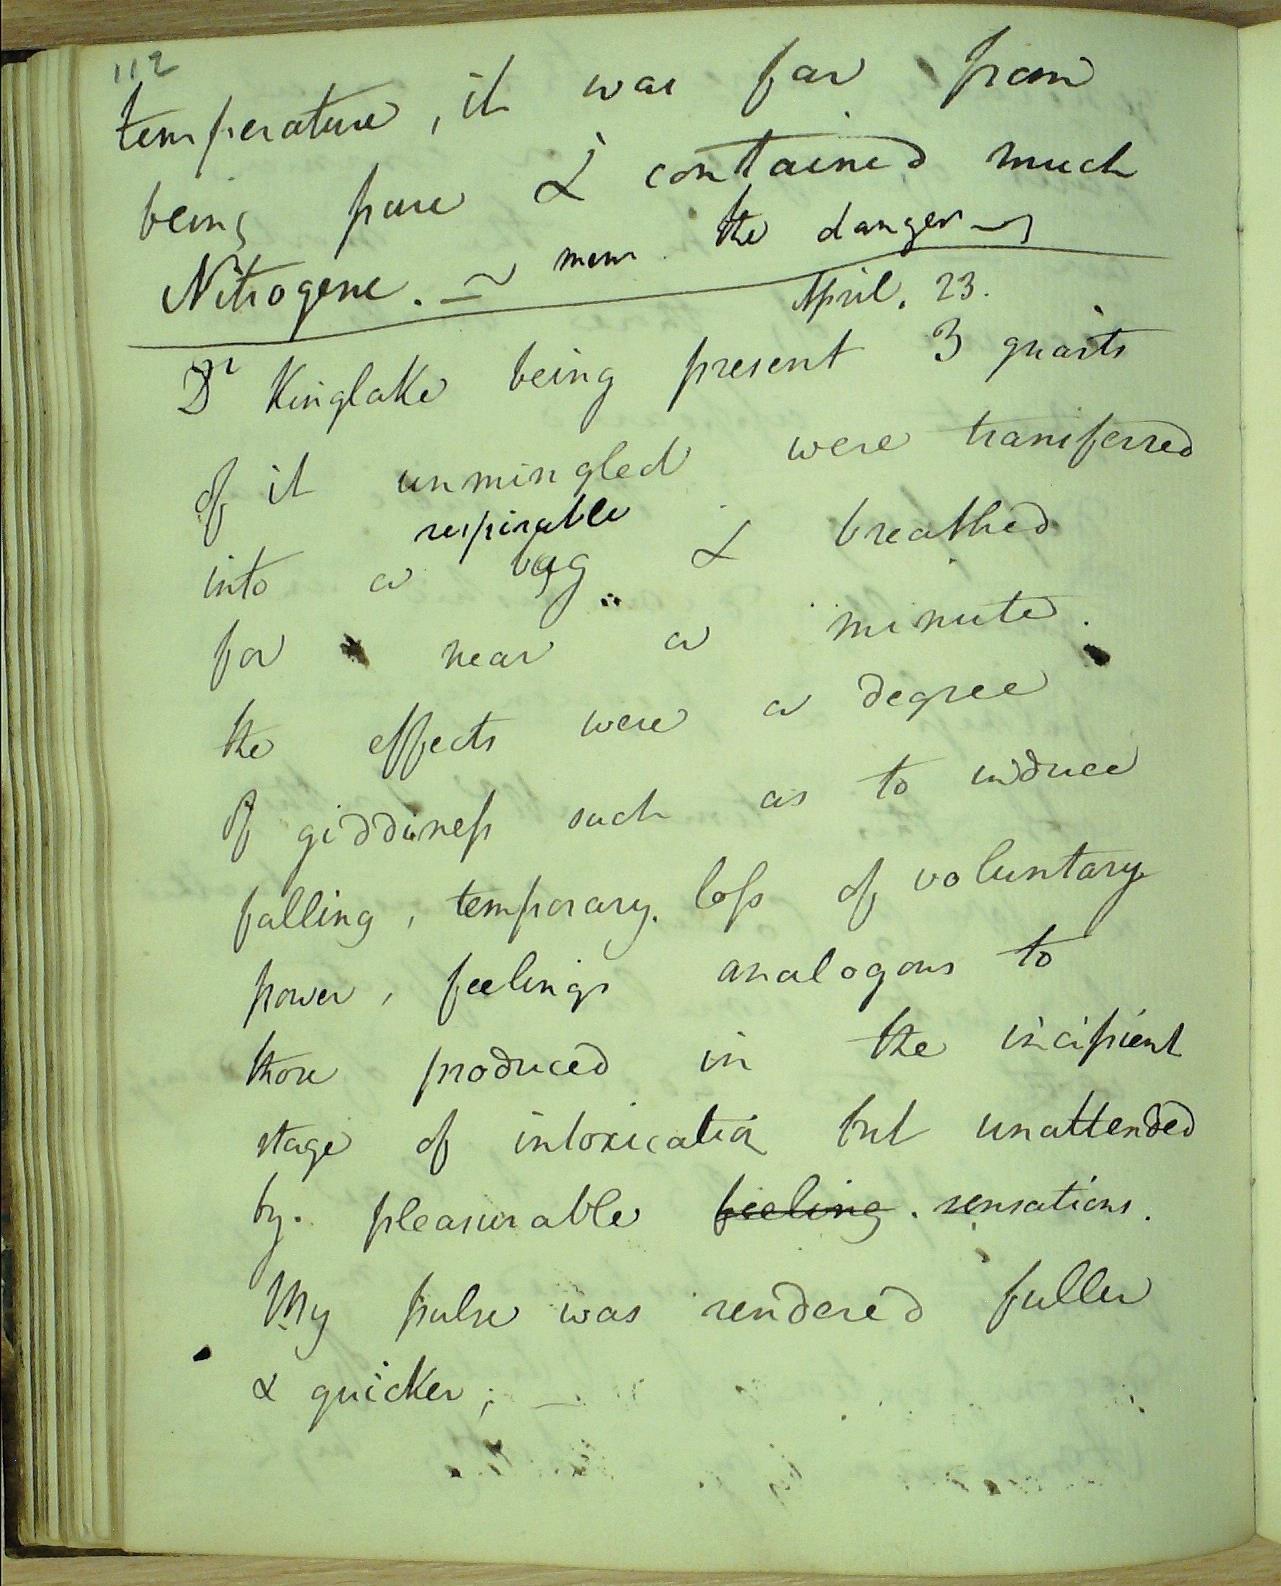 112
temperature, it was far from
being pure & contained much
Nitrogene. — mem. the danger —
April. 23.
Dr Kinglake being present 3 quarts
of it unmingled were transferred
respirable
into a bag & breathed
for near a minute.
the effects were a degree
of giddiness such as to induce
falling, temporary loss of voluntary
power, feelings analogous to
those produced in the incipient
stage of intoxication but unattended
by pleasurable feeling. sensations.
My pulse was rendered fuller
& quicker; —